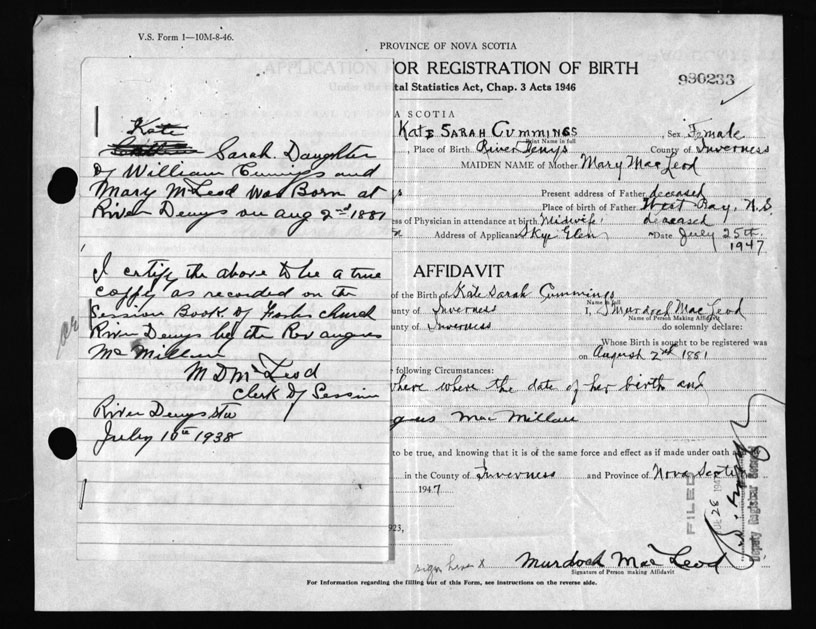 V.S. Form 1—10M-8-46.
PROVINCE OF NOVA SCOTIA
FOR REGISTRATION OF BIRTH
tal Statistics Act, Chap. 3 Acts 1946
980233
A SCOTIA
Kate Sarah Cummings , Sex Female
Print Name in full
, Place of Birth River Denys County of Inverness
MAIDEN NAME of Mother Mary MacLeod
Present address of Father deceased
Place of birth of Father West Bay, N.S.
ess of Physician in attendance at birth Midwife deceased
Address of Applicant Skye Glen Date July 25th.
1947
Kate
Sarah. Daughter
of William Cumigs and
Mary McLeod was Born at
River Denys on Aug 2nd 1881
I certify the above to be a true
coppy as recorded on the
Session Book of Forks church
River Denys by the Rev Angus
Mc Millan
M D McLeod
Clerk of Session
River Denys Sta
July 10th 1938
AFFIDAVIT
of the Birth of Kate Sarah Cummings
Name in full
unty of Inverness I, Murdoch MacLeod
Name of Person Making Affidavit
unty of Inverness do solemnly declare:
Whose Birth is sought to be registered was
on August 2nd 1881
following Circumstances:
where the date of her birth and
gus MacMillan
to be true, and knowing that it is of the same force and effect as if made under oath and
in the County of Inverness and Province of Nova Scotia
1947
FILED
28 1947
Deputy Registrar General
923,
sign here X Murdoch MacLeod
Signature of Person making Affidavit
For Information regarding the filling out of this Form, see instructions on the reverse side.